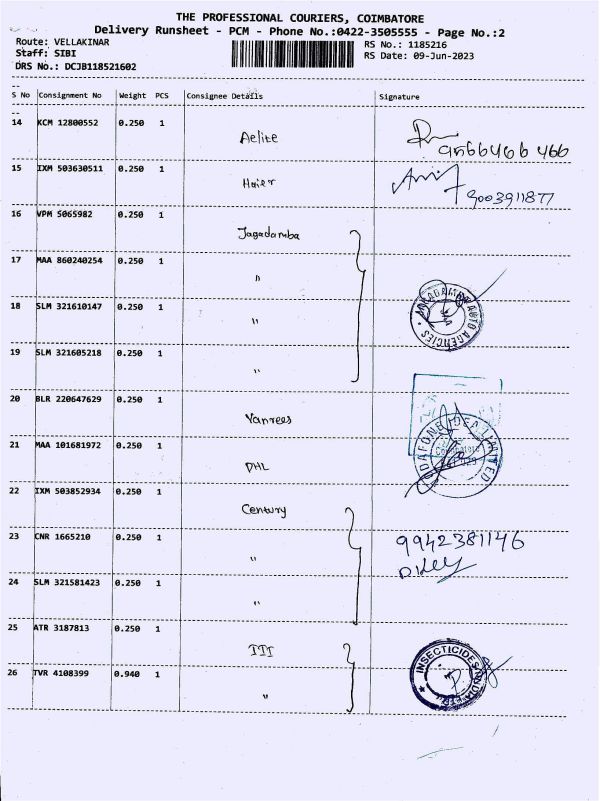 THE PROFESSIONAL COURIERS, COIMBATORE
Delivery Runsheet - PCM - Phone No.:0422-3505555 - Page No.:2
Route: VELLAKINAR
RS No.: 1185216
Staff: SIBI
RS Date: 09-Jun-2023
DRS No.: DCJB118521602
S No Consignment No Weight PCS Consignee Details Signature
14 KCM 12800552 0.250 1 Aelite
9566466 466
15 IXM 503630511 0.250 1 Haier
9003911877
16 VPM 5065982 0.250 1 Jagadamba
17 MAA 860240254 0.250 1 "
18 SLM 321610147 0.250 1 "
JAGADAMBA AUTO AGENCIES
19 SLM 321605218 0.250 1 "
20 BLR 220647629 0.250 1 Vanrees
21 MAA 101681972 0.250 1 DHL
VODAFONE IDEA LIMITED
22 IXM 503852934 0.250 1 Century
23 CNR 1665210 0.250 1 "
9942381146
24 SLM 321581423 0.250 1 "
25 ATR 3187813 0.250 1 III
26 TVR 4108399 0.940 1 "
INSECTICIDES